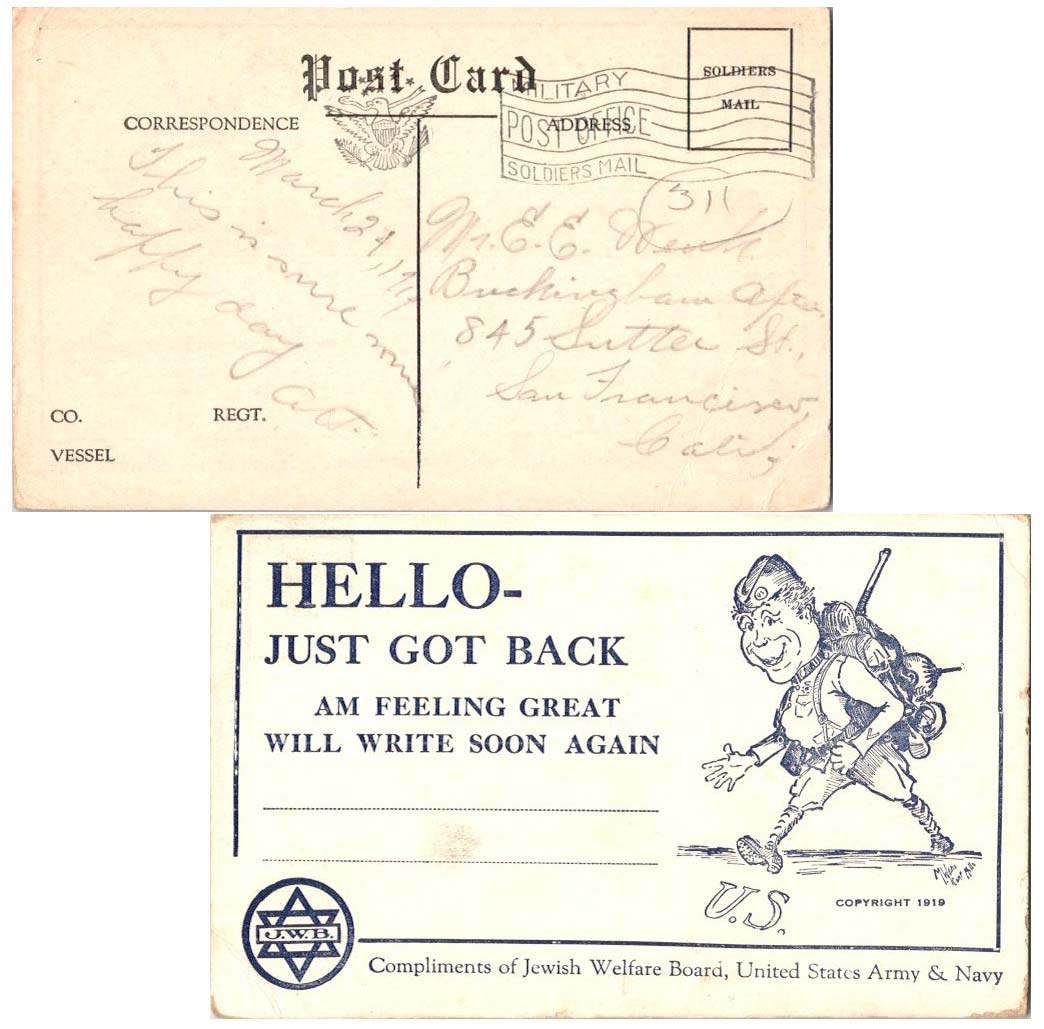 Post Card
MILITARY
POST OFFICE
SOLDIERS MAIL
SOLDIERS
MAIL
CORRESPONDENCE
ADDRESS
March 24, 19
This is sure
happy day
311
Mr. E. E.
Buckingham Apts.
845 Sutter St.,
San Francisco,
Calif.
CO.
REGT.
VESSEL
HELLO-
JUST GOT BACK
AM FEELING GREAT
WILL WRITE SOON AGAIN
U.S.
COPYRIGHT 1919
J.W.B.
Compliments of Jewish Welfare Board, United States Army & Navy